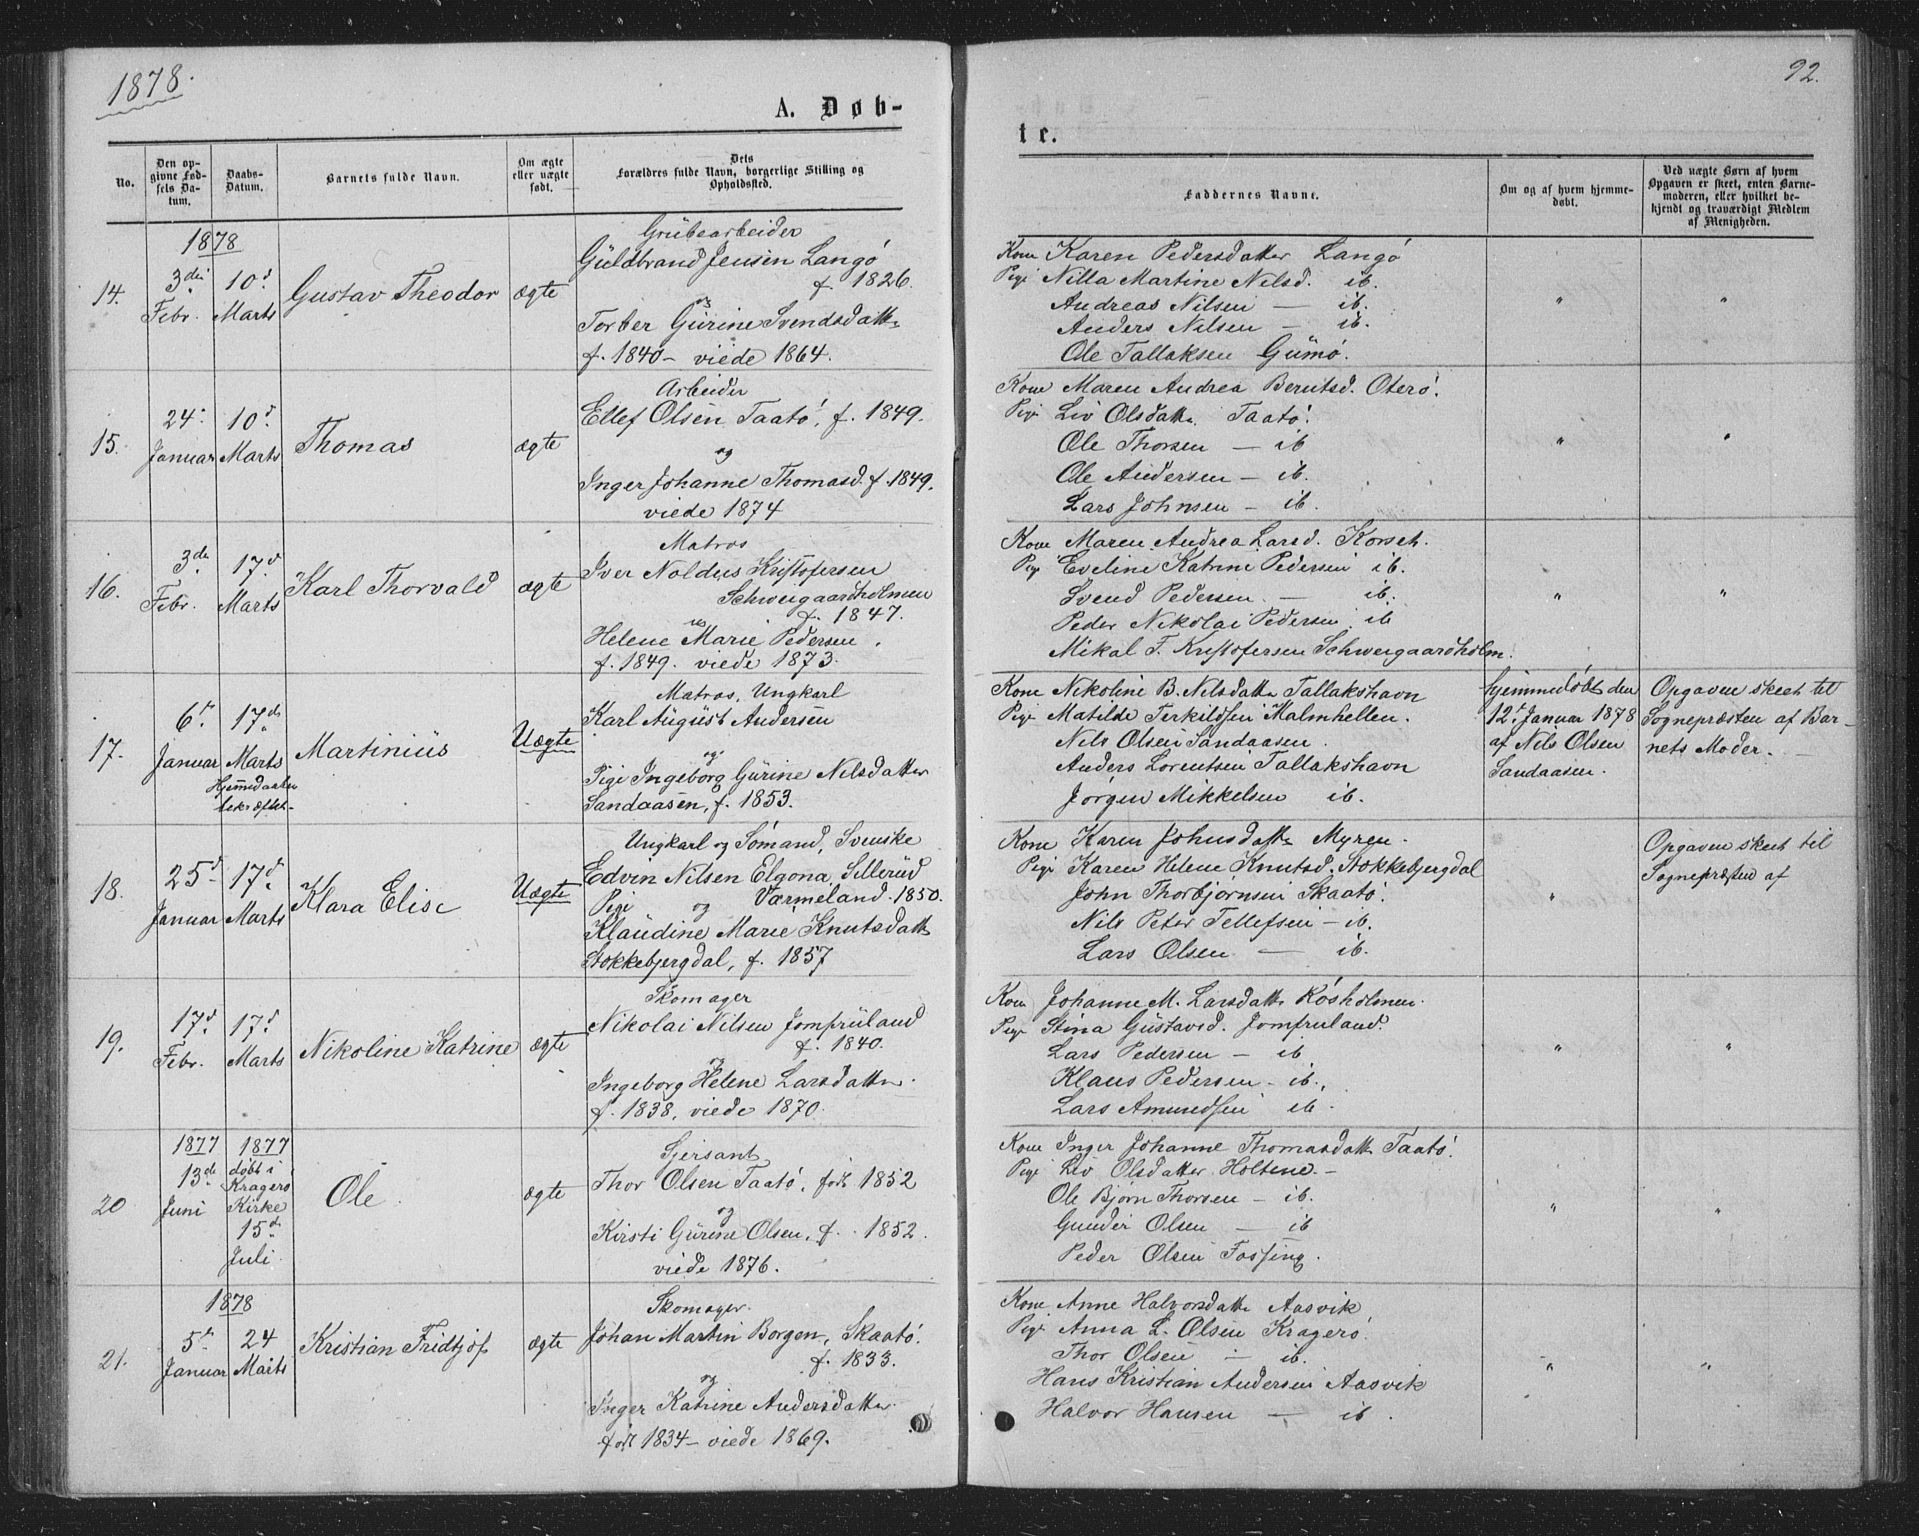 1878.
92.
A. Døb-
te.
No.
Den op-
givne Fød-
sels Da-
tum.
Daabs-
Datum.
Barnets fulde Navn.
Om ægte
eller uægte
født.
Dets
Forældres fulde Navn, borgerlige Stilling og
Opholdssted.
Faddernes Navne.
Om og af hvem hjemme-
døbt.
Ved uægte Børn af hvem
Opgaven er skeet, enten Barne-
moderen, eller hvilket be-
kjendt og troværdigt Medlem
af Menigheden.
1878
14.
3die
Febr.
10d
Marts
Gustav Theodor
ægte
Grubearbeider
Guldbrand Jensen Langø
f. 1826.
og
Torber Gurine Svendsdatt.
f. 1840 – viede 1864.
Kone Karen Pedersdatter Langø
Pige Nilla Martine Nilsd. ib.
Andreas Nilsen — ib.
Anders Nilsen — ib.
Ole Tallaksen Gumø.
"
"
15.
24.
Januar
10d
Marts
Thomas
ægte
Arbeider
Ellef Olsen Taatø, f. 1849.
og
Inger Johanne Thomasd. f. 1849.
viede 1874
Kone Maren Andrea Berntsd. Oterø.
Pige Liv Olsdatt. Taatø.
Ole Thorsen — ib
Ole Andersen — ib.
Lars Johnsen — ib.
"
"
16.
3die
Febr.
17d
Marts
Karl Thorvald
ægte
Matros
Iver Noldus Kristofersen
Schweigaardholmen
f. 1847.
og
Helene Marie Pedersen
f. 1849. viede 1873.
Kone Maren Andrea Larsd. Korset.
Pige Eveline Katrine Pedersen ib.
Svend Pedersen. — ib.
Peder Nikolai Pedersen ib
Mikal F. Kristofersen Schweigaardholm.
"
"
17.
6te
Januar
17de
Marts
Hjemmedaaben
bekræftet.
Martinius
Uægte
Matros, Ungkarl
Karl August Andersen
og
Pige Ingeborg Gurine Nilsdatter
Sandaasen, f. 1853.
Kone Nikoline B. Nilsdatt. Tallakshavn
Pige Matilde Terkildsen Malmhellen.
Nils Olsen Sandaasen.
Anders Lorentsen Tallakshavn
Jørgen Mikkelsen ib.
hjemmedøbt den
12te Januar 1878
af Nils Olsen
Sandaasen.
Opgaven skeet til
Sognepræsten af Bar-
nets Moder.
18.
25d
Januar
17d
Marts
Klara Elise
Uægte
Ungkarl og Sømand, Svenske
Edvin Nilsen Elgona, Sillerud
Pige og Værmeland. 1850.
Klaudine Marie Knutsdatt.
Stokkebjergdal, f. 1857
Kone Karen Johnsdatt. Myren.
Pige Karen Helene Knutsd. Stokkebjergdal
John Thorbjørnsen Skaatø.
Nils Peter Tellefsen — ib.
Lars Olsen — ib.
"
Opgaven skeet til
Sognepræsten af
19.
17d
Febr.
17d
Marts
Nikoline Katrine
ægte
Skomager
Nikolai Nilsen Jomfruland
f. 1840.
og
Ingeborg Helene Larsdatter.
f. 1838, viede 1870.
Kone Johanne M. Larsdatt. Røsholmen.
Pige Stina Gustavsd. Jomfruland.
Lars Pedersen — ib.
Klaus Pedersen — ib.
Lars Amundsen ib.
"
"
20
1877
13de
Juni
1877
døbt i
Kragerø
Kirke
15de
Juli
Ole
ægte
Sersant
Thor Olsen Taatø, født 1852
og
Kirsti Gurine Olsen, f. 1852.
viede 1876.
Kone Inger Johanne Thomasdatt. Taatø.
Pige Liv Olsdatter Holtene —
Ole Bjørn Thorsen — ib.
Gunder Olsen — ib
Peder Olsen Fossing.
"
"
1878
21.
5te
Januar
24
Marts
Kristian Fridtjof
ægte
Skomager.
Johan Martin Borgen, Skaatø.
f. 1833.
og
Inger Katrine Andersdatter
født 1834 – viede 1869.
Kone Anne Halvorsdatt. Aasvik
Pige Anna L. Olsen Kragerø.
Thor Olsen — ib.
Hans Kristian Andersen Aasvik
Halvor Hansen — ib.
"
"